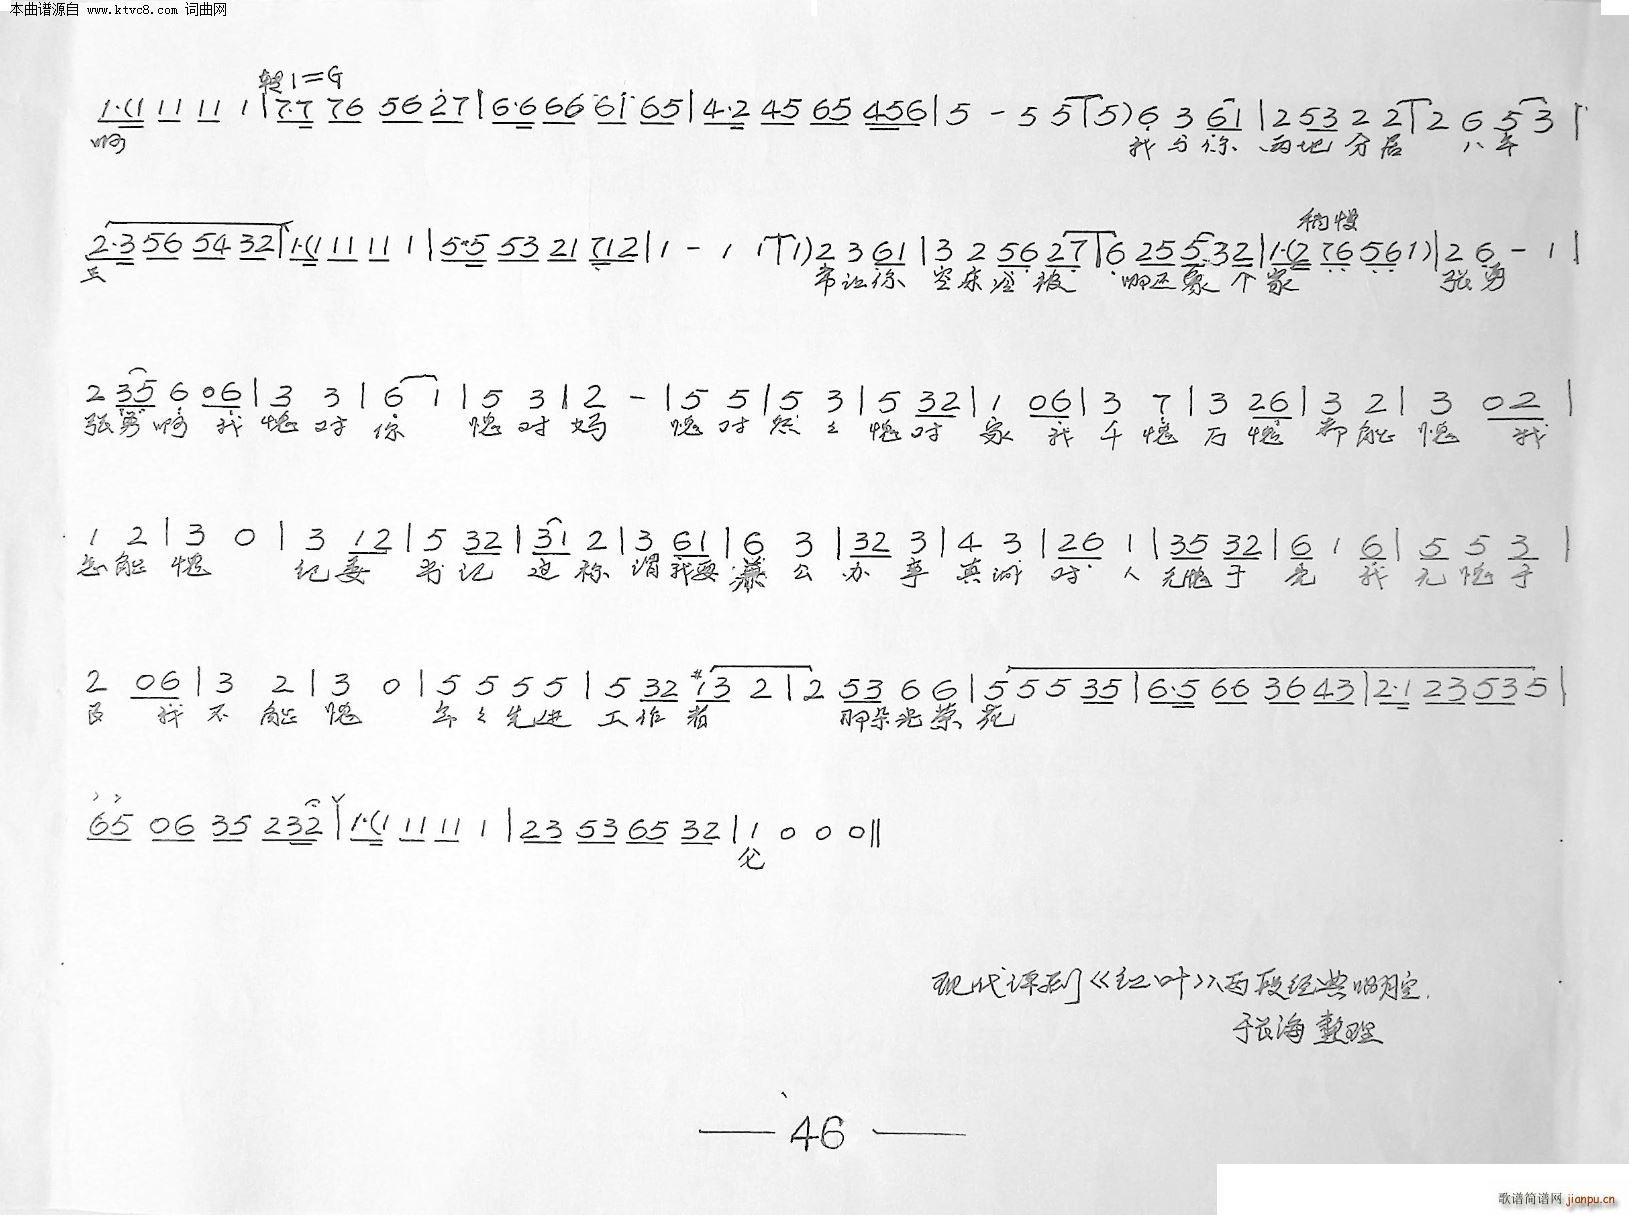 本曲谱源自 www.ktvc8.com 词曲网
转1=G
1·(1 11 11 1 | 7·7 76 56 27 | 6·6 66 61 65 | 4·2 45 65 456 | 5 - 5 5 | 5) 6 3 61 | 2 53 2 2 | 2 6 5 3 |
啊 我与你 两地分居 八年
稍慢
2·3 56 54 32 | 1·(1 11 11 1 | 5·5 53 21 712 | 1 - 1 1 | 1) 2 3 61 | 3 2 56 27 | 6 25 5·3 2 | 1·(2 76 56 1) | 2 6 - 1 |
整 常让你 空床 被 哪还象个家 张勇
2 35 6 06 | 3 3 | 6 1 | 5 3 | 2 - | 5 5 | 5 3 | 5 32 | 1 06 | 3 7 | 3 26 | 3 2 | 3 02 |
张勇啊 我愧对你 愧对妈 愧对 愧对家 我千愧万愧都能愧 我
1 2 | 3 0 | 3 12 | 5 32 | 31 2 | 3 61 | 6 3 | 32 3 | 4 3 | 26 1 | 35 32 | 6 1 6 | 5 5 3 |
怎能愧 纪委书记这称谓 我要秉公办事真诚对人 无愧于党 我无愧于
2 06 | 3 2 | 3 0 | 5 5 5 5 | 5 32 #13 2 | 2 53 6 6 | 5 5 5 35 | 6·5 66 36 43 | 2·1 23 53 5 |
民 我不能愧 年年先进工作者 那朵光荣花
65 06 35 232 | 1·(1 11 11 1 | 23 53 65 32 | 1 0 0 0 ‖
现代评剧《红叶》两段经典唱腔.
于长海 整理
— 46 —
歌谱简谱网 jianpu.cn